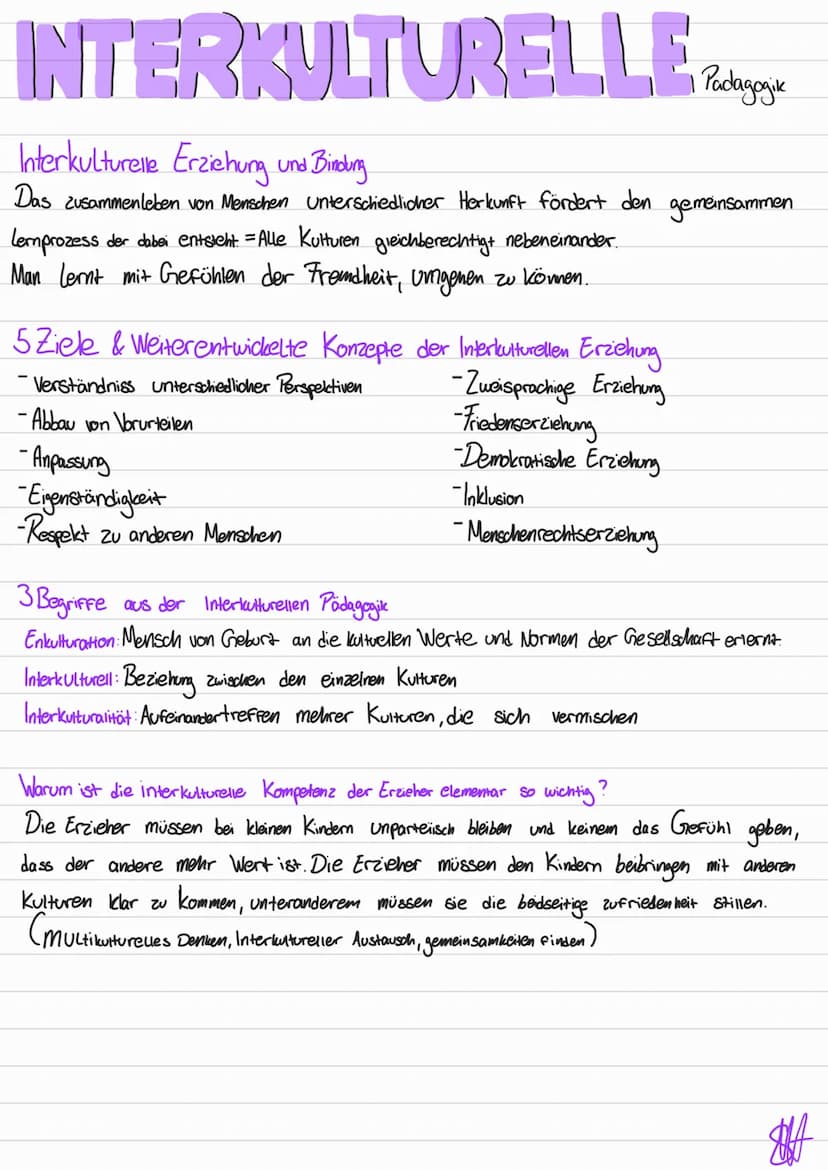 INTERKULTURELLE Pädagogik
Interkulturelle Erziehung und Bindung
Das zusammenleben von Menschen unterschiedlicher Herkunft fördert den gemeinsammen
Lernprozess der dabei entsteht = Alle Kulturen gleichberechtigt nebeneinander.
Man lernt mit Gefühlen der Fremdheit, umgehen zu können.
5 Ziele & Weiterentwickelte Konzepte der Interkulturellen Erziehung
- Verständniss unterschiedlicher Perspektiven
- Abbau von Vorurteilen
- Anpassung
- Eigenständigkeit
- Respekt zu anderen Menschen
- Zweisprachige Erziehung
- Friedenserziehung
- Demokratische Erziehung
- Inklusion
- Menschenrechtserziehung
3 Begriffe aus der Interkulturellen Pädagogik
Enkulturation: Mensch von Geburt an die kulturellen Werte und Normen der Gesellschaft erlernt.
Interkulturell: Beziehung zwischen den einzelnen Kulturen
Interkulturalität: Aufeinandertreffen mehrer Kulturen, die sich vermischen
Warum ist die interkulturelle Kompetenz der Erzieher elementar so wichtig?
Die Erzieher müssen bei kleinen Kindern unparteiisch bleiben und keinem das Gefühl geben,
dass der andere mehr Wert ist. Die Erzieher müssen den Kindern beibringen mit anderen
Kulturen klar zu kommen, unteranderem müssen sie die beidseitige zufriedenheit stillen.
(Multikulturelles Denken, Interkultureller Austausch, gemeinsamkeiten finden)